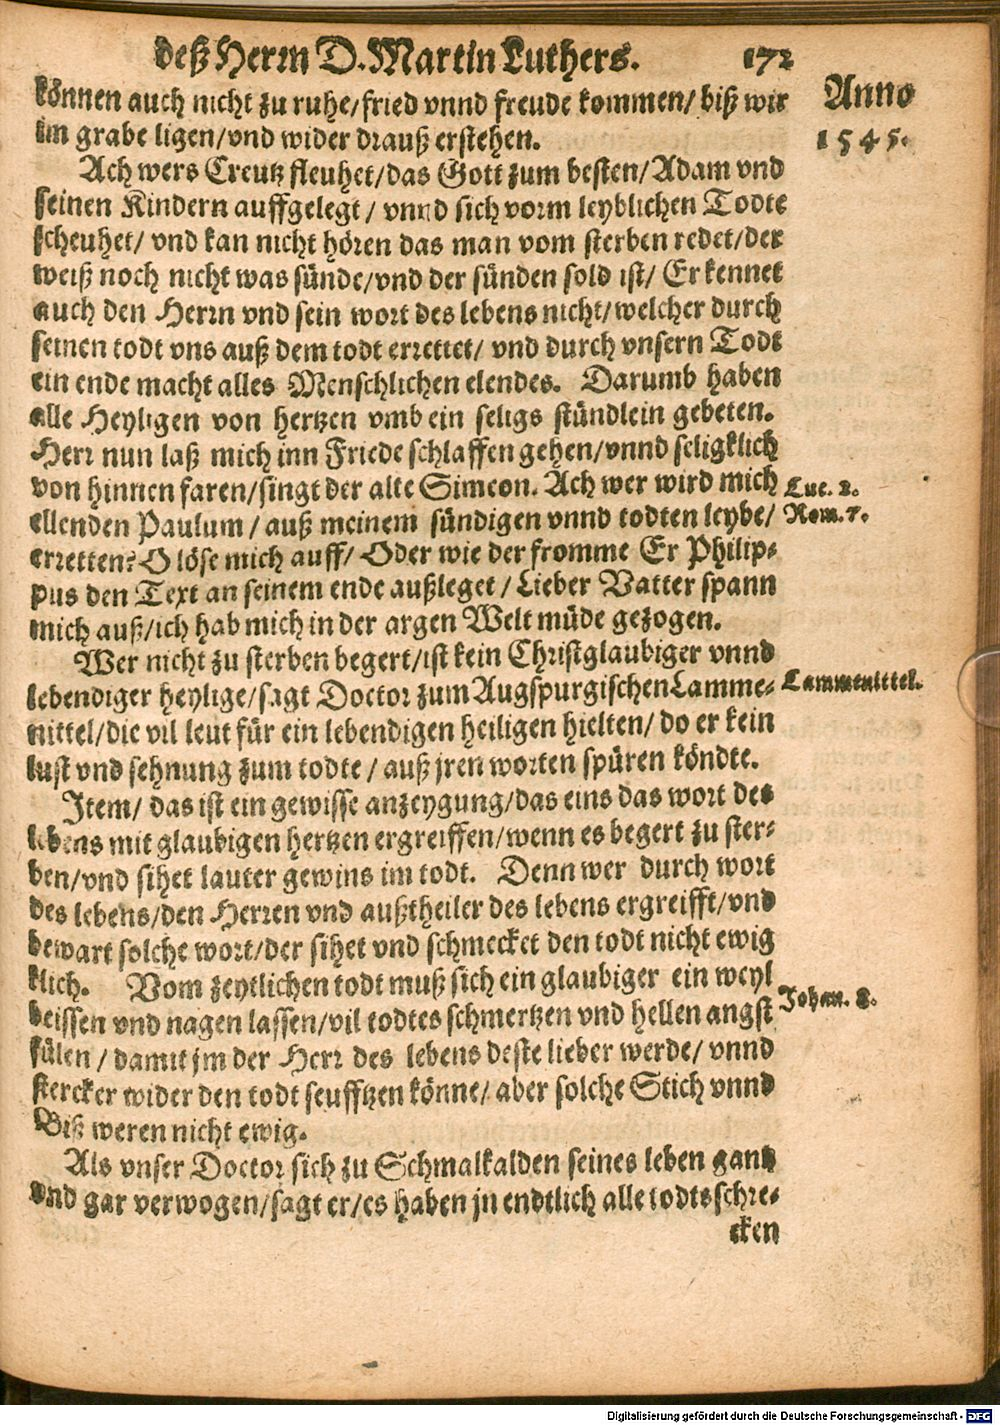 deß Herrn D. Martin Luthers. 172
Anno
1545.
können auch nicht zu ruhe/ fried vnnd freude kommen/ biß wir
im grabe ligen/ vnd wider drauß erstehen.
Ach wers Creutz fleuhet/ das Gott zum besten/ Adam vnd
seinen Kindern auffgelegt/ vnnd sich vorm leyblichen Todte
scheuhet/ vnd kan nicht hören das man vom sterben redet/ der
weiß noch nicht was sünde/ vnd der sünden sold ist/ Er kennet
auch den Herrn vnd sein wort des lebens nicht/ welcher durch
seinen todt vns auß dem todt errettet/ vnd durch vnsern Todt
ein ende macht alles Menschlichen elendes. Darumb haben
alle Heyligen von hertzen vmb ein seligs stündlein gebeten.
Herr nun laß mich inn Friede schlaffen gehen/ vnnd seligklich
von hinnen faren/ singt der alte Simeon. Ach wer wird mich
Luc. 2.
ellenden Paulum/ auß meinem sündigen vnnd todten leybe/
Rom. 7.
erretten? O löse mich auff/ Oder wie der fromme Er Philip⸗
pus den Text an seinem ende außleget/ Lieber Vatter spann
mich auß/ ich hab mich in der argen Welt müde gezogen.
Wer nicht zu sterben begert/ ist kein Christglaubiger vnnd
lebendiger heylige/ sagt Doctor zum Augspurgischen Lamme⸗
Lammenittel.
nittel/ die vil leut für ein lebendigen heiligen hielten/ do er kein
lust vnd sehnung zum todte/ auß jren worten spüren köndte.
Item/ das ist ein gewisse anzeygung/ das eins das wort des
lebens mit glaubigen hertzen ergreiffen/ wenn es begert zu ster⸗
ben/ vnd sihet lauter gewins im todt. Denn wer durch wort
des lebens/ den Herren vnd außtheiler des lebens ergreifft/ vnd
bewart solche wort/ der sihet vnd schmecket den todt nicht ewig
klich. Vom zeytlichen todt muß sich ein glaubiger ein weyl
Johan. 8.
beissen vnd nagen lassen/ vil todtes schmertzen vnd hellen angst
fülen/ damit jm der Herr des lebens deste lieber werde/ vnnd
stercker wider den todt seufftzen könne/ aber solche Stich vnnd
Biß weren nicht ewig.
Als vnser Doctor sich zu Schmalkalden seines leben gantz
vnd gar verwogen/ sagt er/ es haben jn endtlich alle todtsschre⸗
cken
Digitalisierung gefördert durch die Deutsche Forschungsgemeinschaft - DFG